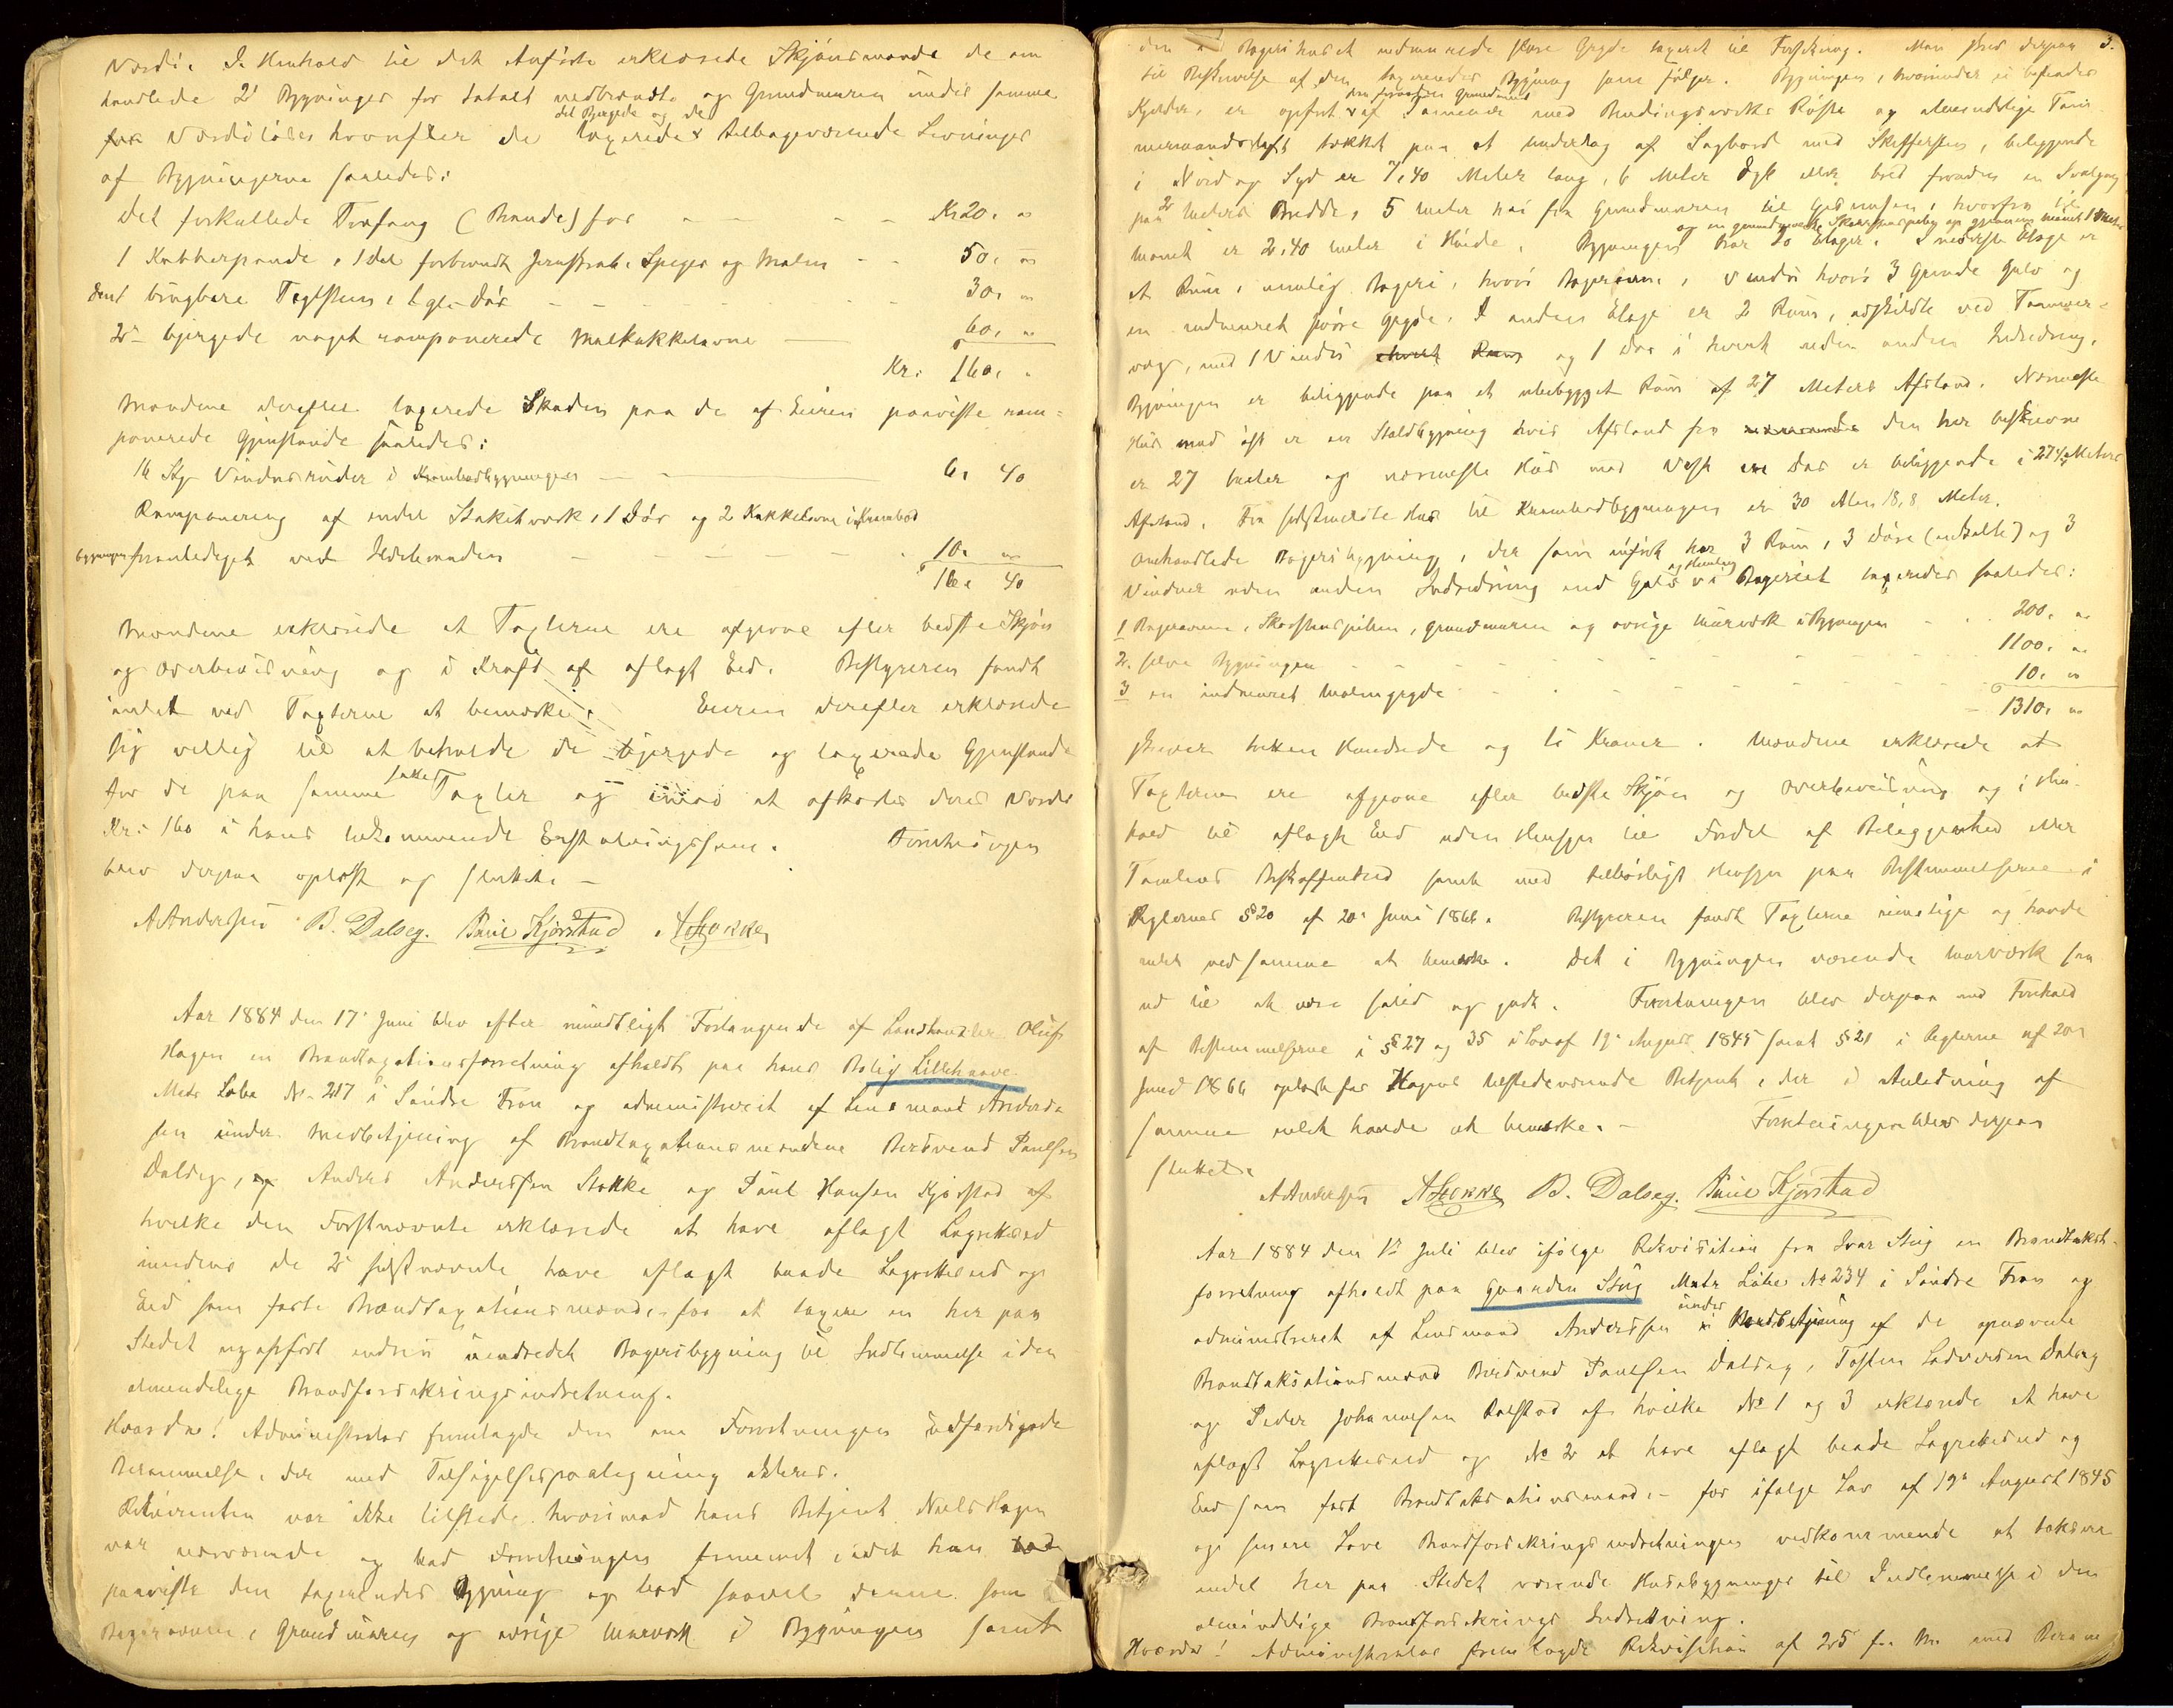 Værdi. I Henhold til det Anførte erklærede Skjønsmænde de om
handlede 2de Bygninger for totalt nedbrændte og Grundmuren under samme
for Værdiløse hvorefter de det Bjergede og de taxerede tilbageværende Levninger
af Bygningerne saaledes:
det forkullede Torfang (Brænde) for Kr 20, "
1 Kobberpande, 1 del forbrændt Jernskrab, Speger og Malm 50, "
Endel brugbare Taglsteen, 1 gl. Dør 30, "
2de bjergede noget ramponerede Malmkakkelovne 60, "
Kr. 160, "
Mændene derefter taxerede Skaden paa de af Eieren paaviste ram=
ponerede Gjenstande saaledes:
16 Stk Vinduesruder i Krambodbygningen 6, 40
Ramponering af endel Stakitværk, 1 Dør og 2 Kakkelovne i Krambod
bygningen foranlediget ved Ildebranden 10, "
16, 40
Mændene erklærede at Taxterne ere afgivne efter bedste Skjøn
og Overbeviisning og i Kraft af aflagt Eed. Bestyreren fandt
intet ved Taxterne at bemærke. Eieren derefter erklærede
sig villig til at beholde de bjergede og taxerede Gjenstande
for de paa samme satte Taxter og imod at afkortes deres Værdi
Kr. 160 i hans tilkommende Erstatningssum. Forretningen
blev derpaa oplæst og sluttet. –
A Anderssen B. Dalseg. Paul Kjørstad A Stokke
Aar 1884 den 17de Juni blev efter mundtligt Forlangende af Landhandler Oluf
Hagen en Brandtaxationsforretning afholdt paa hans Bolig Lillehaave
Matr Løbe No 217 i Søndre Fron og administreret af Lensmand Anders=
sen under Medbetjening af Brandtaxationsmændene Berdvend Paulsen
Dalseg, og Anders Anderssen Stokke og Paul Hansen Kjørstad af
hvilke den Førstnævnte erklærede at have aflagt Lagrettesed
imedens de 2de sidstnævnte have aflagt baade Lagrettesed og
Eed som faste Brandtaxationsmænd, for at taxere en her paa
Stedet nyopført endnu uindredet Bageribygning til Indlemmelse i den
almindelige Brandforsikringsindretning.
Hvorda! Administrator fremlagde den om Forretningen udfærdigede
Berammelse, der med Tilsigelsespaategning akteres.
Rekvirenten var ikke tilstede hvorimod hans Betjent Niels Hagen
var nærværende og bad Forretningen fremmet, idet han bad
paaviste den taxerendes Bygning og bad saavel denne som
Bagerovnen, Grundmuren og øvrige Murværk i Bygningen samt
3.
den i Bagerihuset indmurede store Gryde taxeret til Forsikring. Man skred derpaa
til Beskrivelse af den taxerendes Bygning som følger. Bygningen, hvorunder ei befindes
Kjelder, er opført paa forsvarlig Grundmuur af Tømmer med Bindingsværks Røste og almindelige Tøm
mermandsloft tækket paa et Underlag af Sagbord med Skiffersteen, beliggende
i Nord og Syd er 7,40 Meter lang, 6 Meter dyb eller bred foruden en Svalgang
paa 2 Meters Bredde, 5 Meter høi fra Grundmuren til Gesimsen, hvorfra til
Mønet er 2,40 Meter i Høide. Bygningen har 2 Etager og en gjennemgaaende Skorstenspibe op gjennem Mønet 1 Meter. I nederste Etage er
et Rum, nemlig Bageri, hvori Bagerovn, Vindu hvori 3 Gruede Gulv og
en indmuret større Gryde. I anden Etage er 2 Rum, adskildte ved Tømmer=
væg, med 1 Vindu i hvert og 1 Dør i hvert uden anden Indredning.
Bygningen er beliggende paa et ubebygget Rum af 27 Meters Afstand. Nærmeste
Huus mod øst er en Staldbygning hvis Afstand fra den her beskrevne
er 27 Meter og nærmeste Huus mod Vest er beliggende i 27 Meters
Afstand. Fra sidstmeldte Huus til Krambodbygningen er 30 Alen 18,8 Meter.
Omhandlede Bageribygning, der som anført har 3 Rum, 3 Døre (enkelte) og 3
Vinduer uden anden Indredning end Gulv og Himling i Bageriet taxeredes saaledes:
1 Bagerovnen, Skorstenspiben, Grundmuren og øvrige Murværk i Bygningen 200, "
2. selve Bygningen 1100, "
3 en indmuret Malmgryde 10, "
1310, "
skriver tretten Hundrede og ti Kroner. Mændene erklærede at
Taxterne ere afgivne efter bedste Skjøn og Overbeviisning og i Hen=
hold til aflagt Eed uden Hensyn til Fordel af Beliggenhed eller
Tomtens Beskaffenhed samt med tilbørligt Hensyn paa Bestemmelserne i
Reglernes § 20 af 20de Juni 1866. Bestyreren fandt Taxterne rimelige og havde
intet ved samme at bemærke. Det i Bygningen værende Murværk saa
ud til at være solid og godt. Forretningen blev derpaa med Forehold
af Bestemmelserne i §§ 27 og 35 i Lov af 19de August 1845 samt § 21 i Reglerne af 20de
Juni 1866 oplæst for Hagens tilstedeværende Betjent, der i Anledning af
samme intet havde at bemærke. – Forretningen blev derpaa
sluttet.
A Anderssen A Stokke B. Dalseg. Paul Kjørstad
Aar 1884 den 1ste Juli blev ifølge Rekvisition fra Ivar Stig en Brandtakst=
forretning afholdt paa Gaarden Stig Matr Løbe No 234 i Søndre Fron og
administreret af Lensmand Anderssen under Medbetjening af de opnævnte
Brandtaksationsmænd Berdvend Paulsen Dalseg, Tosten Ladvardsen Dalseg
og Peder Johannesen Rolstad af hvilke No 1 og 3 erklærede at have
aflagt Lagrettesed og No 2 at have aflagt baade Lagrettesed og
Eed som fast Brandtaksationsmand. – for ifølge Lov af 19de August 1845
og senere Love Brandforsikringsindretningen vedkommende at taksere
endel her paa Stedet værende Huusbygninger til Indlemmelse i den
almindelige Brandforsikrings Indretning.
Hvorda! Administrator fremlagde Rekvisition af 25 f. M. med Beram